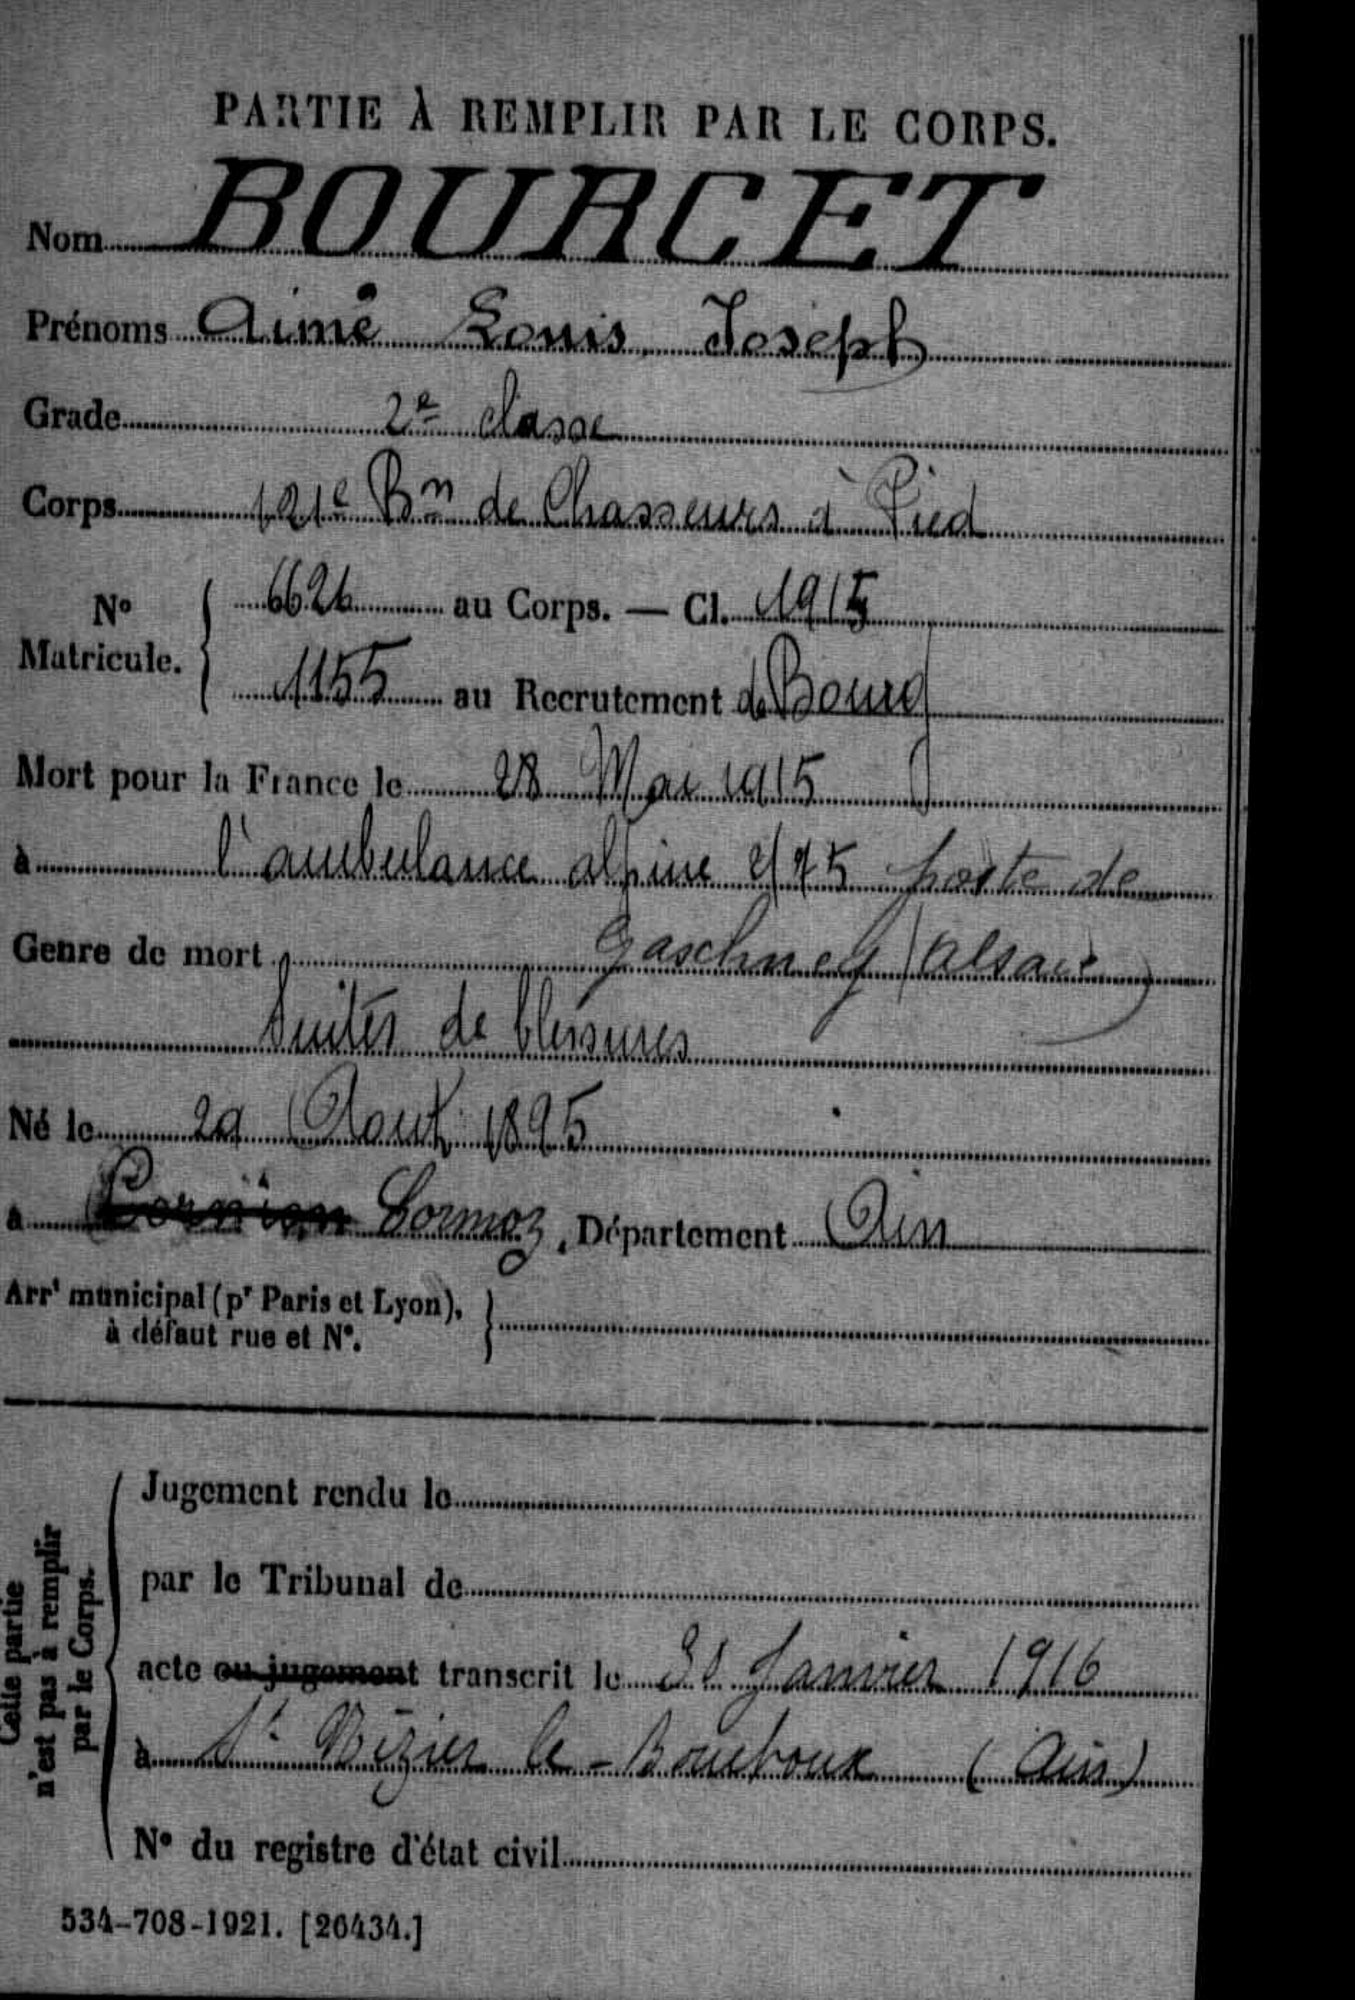 PARTIE À REMPLIR PAR LE CORPS.
Nom BOURCET
Prénoms Aimé Louis Joseph
Grade 2e classe
Corps 121e Bn de Chasseurs à Pied
No Matricule. 6626 au Corps. — Cl. 1915
1155 au Recrutement de Bourg
Mort pour la France le 28 Mai 1915
à l'ambulance alpine 2/75 poste de
Genre de mort Gaschney (Alsace)
Suites de blessures
Né le 29 Aout 1895
à Cormoz, Département Ain
Arrt municipal (pr Paris et Lyon),
à défaut rue et No.
Cette partie
n'est pas à remplir
par le Corps.
Jugement rendu le
par le Tribunal de
acte ou jugement transcrit le 31 Janvier 1916
à St Nizier le-Bouchoux (Ain)
No du registre d'état civil
534-708-1921. [26434.]